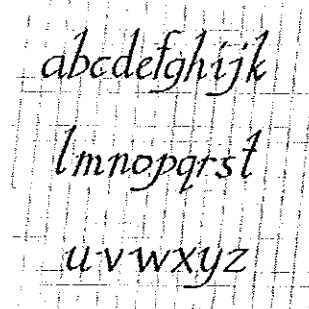 abcdefghijk
lmnopqrst
uvwxyz